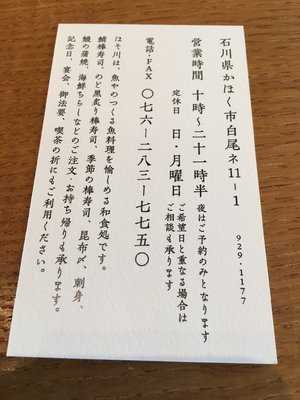 石川県かほく市白尾ネ11-1
929-1177
営業時間 十時~二十一時半 夜はご予約のみとなります
定休日 日・月曜日 ご希望日と重なる場合は
ご相談も承ります
電話・FAX 〇七六ー二八三ー七七五〇
ほそ川は、魚やのつくる魚料理を愉しめる和食処です。
鯖棒寿司、のど黒炙り棒寿司、季節の棒寿司、昆布〆、刺身、
鰻の蒲焼、海鮮ちらしなどのご注文・お持ち帰りも承ります。
記念日、宴会、御法要、喫茶の折にもご利用ください。